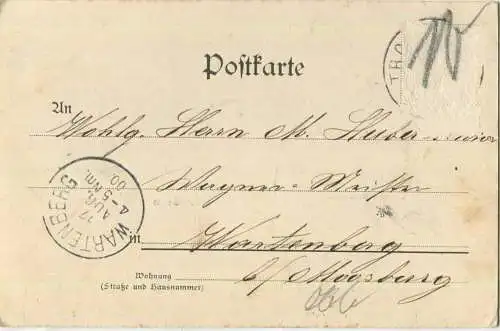 Postkarte
An
Wohlg. Herrn M. Huber
Wagner-Meister
WARTENBERG
17
AUG.
4-5 Nm.
00
in Wartenberg
b/ Moosburg
Wohnung
(Straße und Hausnummer)